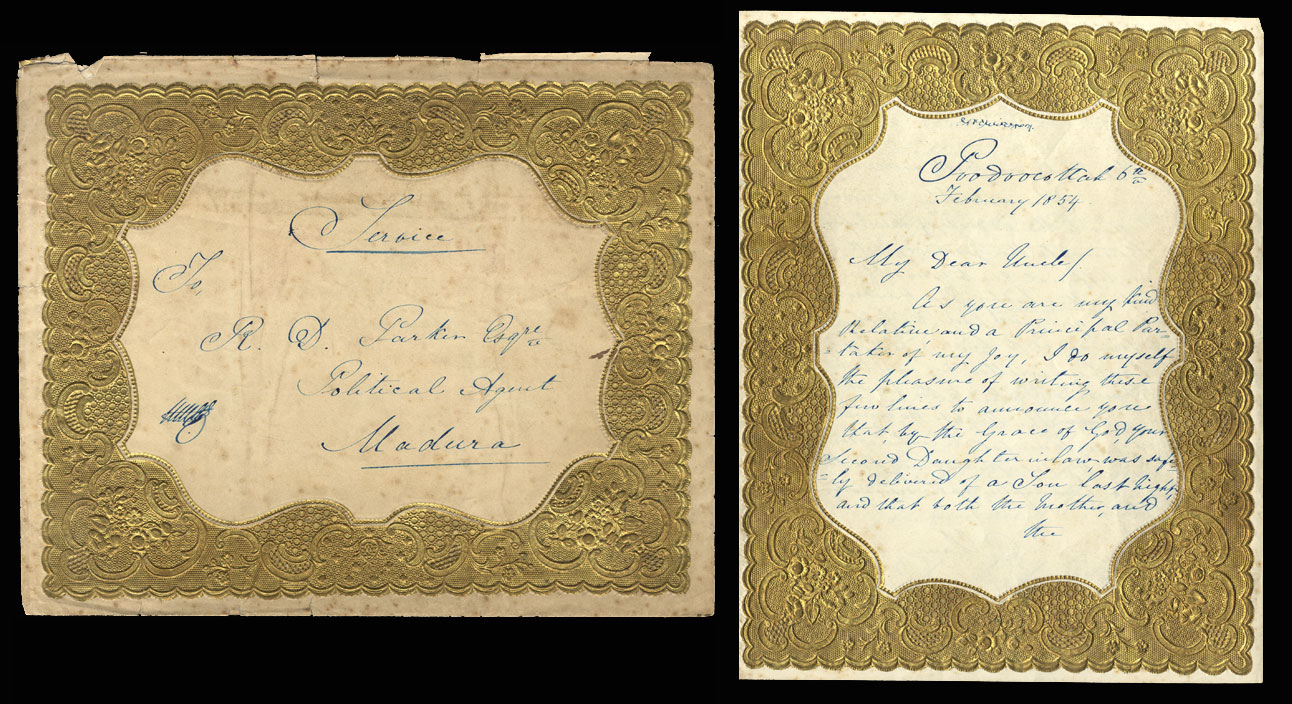 Service
To,
R. D. Parker Esqre
Political Agent
Madura
Poodoocottah 6th
February 1854
My Dear Uncle/
As you are my kind
Relative and a Principal Par-
-taker of my Joy, I do myself
the pleasure of writing these
few lines to announce you
that, by the Grace of God, your
Second Daughter in law was safe-
-ly delivered of a Son last night,
and that both the mother, and
the